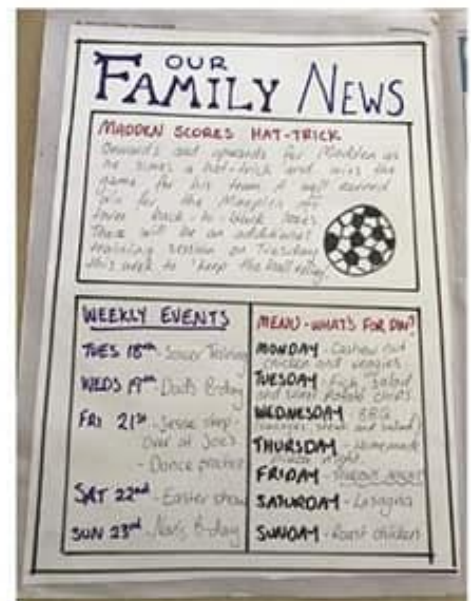 OUR
FAMILY NEWS
MADDEN SCORES HAT-TRICK
Onwards and upwards for Madden as
he scores a hat-trick and wins the
game for his team. A well earned
win for the after
back-to-back losses
There will be an additional
training session on Tuesday
this week to 'keep the ball rolling'
WEEKLY EVENTS
TUES 18th - Soccer Training
WEDS 19th - Dad's B-day
FRI 21st - Jesse sleep
over at Joe's
- Dance practice
SAT 22nd - Easter show
SUN 23rd - Nan's B-day
MENU - WHAT'S FOR DIN?
MONDAY - Cashew nut
chicken and veggies
TUESDAY - Fish, salad
and sweet potato chips
WEDNESDAY - BBQ
(sausages, steak and salad)
THURSDAY - Homemade
pizza night
FRIDAY -
SATURDAY - Lasagna
SUNDAY - Roast chicken